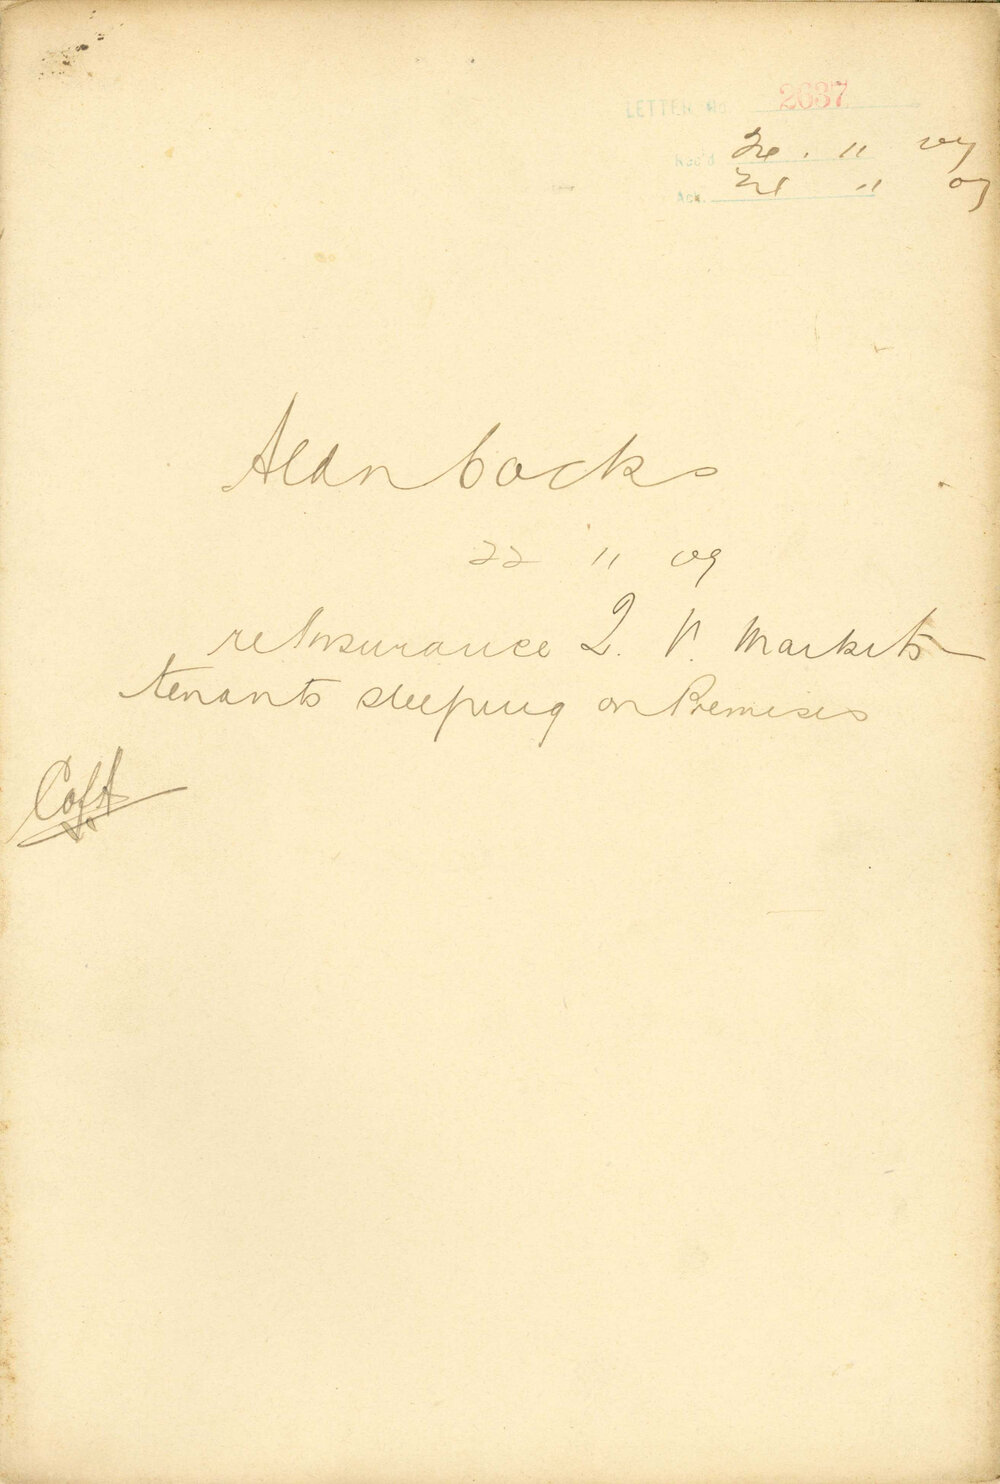 LETTER No 2637
Rec'd 22 . 11 09
Ack. 11 09
Aldn Cocks
22 11 09
re Insurance Q. V. Markets
tenants sleeping on Premises
C of A